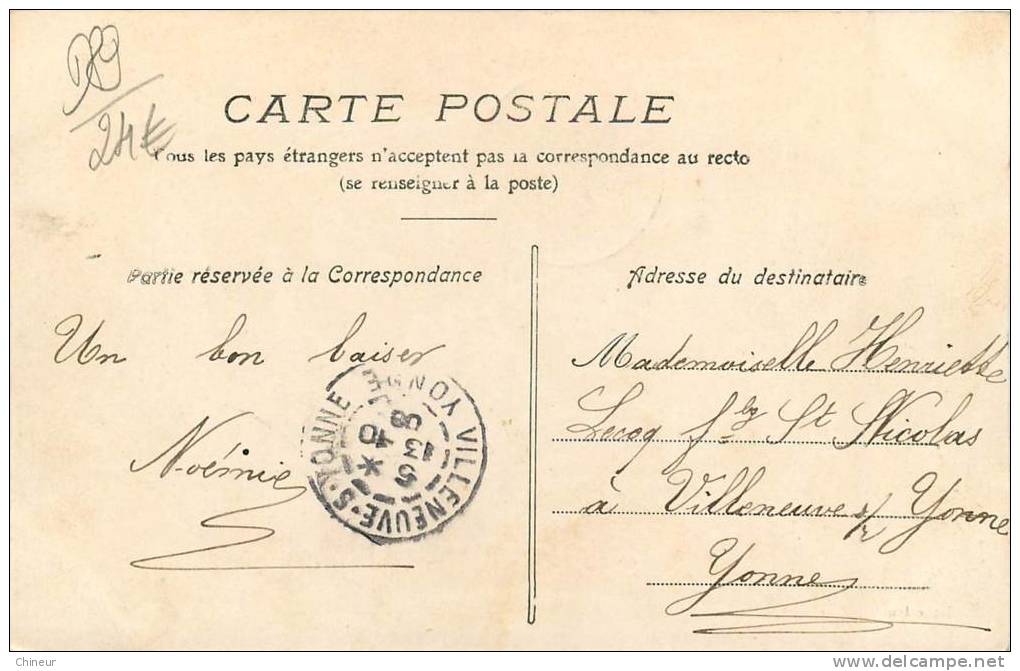 89
24€
CARTE POSTALE
Tous les pays étrangers n'acceptent pas la correspondance au recto
(se renseigner à la poste)
Partie réservée à la Correspondance
Un bon baiser
Noémie
VILLENEUVE-S-YONNE
YONNE
13 5
Adresse du destinataire
Mademoiselle Henriette
Lecoq fbg St Nicolas
à Villeneuve s/ Yonne
Yonne
Chineur
www.delcampe.net